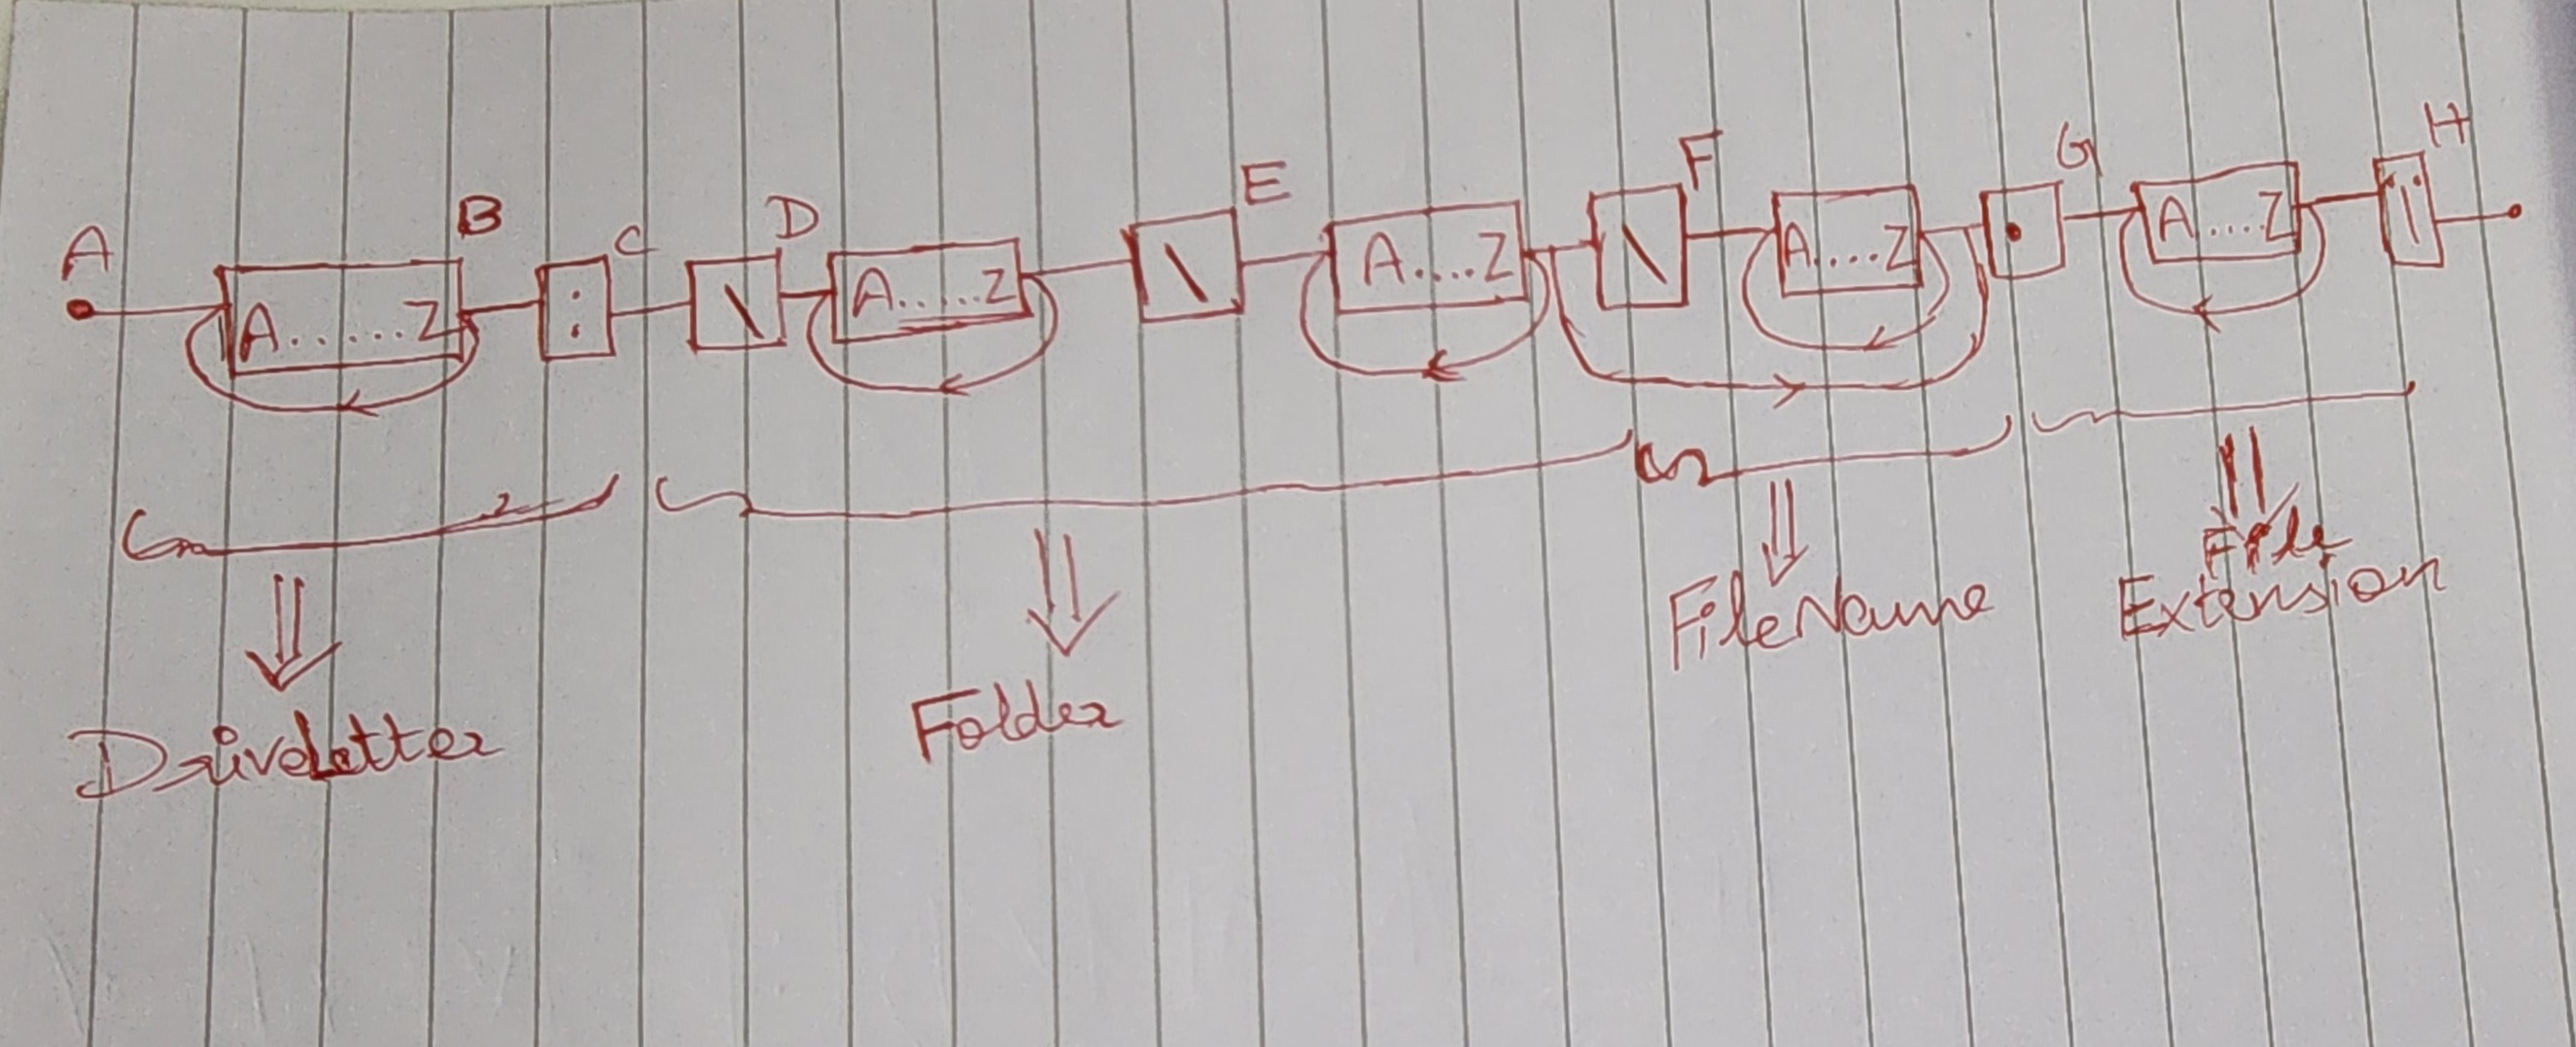 A B C D E F G H
A......Z : \ A.....Z \ A....Z \ A....Z . A....Z
DriveLetter
Folder
FileName
File
Extension